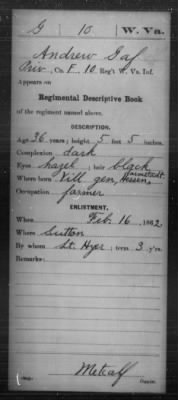 G 10 W. Va.
Andrew Gaf
Priv, Co. F. 10 Reg't W. Va. Inf.
Appears on
Regimental Descriptive Book
of the regiment named above.
DESCRIPTION.
Age 36 years; height 5 feet 5 inches.
Complexion dark
Eyes hazel; hair black
Where born Kill gen, Hessen, Darmstadt
Occupation farmer
ENLISTMENT.
When Feb. 16, 1862
Where Sutton
By whom Lt. Hyer; term 3 y'rs.
Remarks:
Metcalf
Copyist.